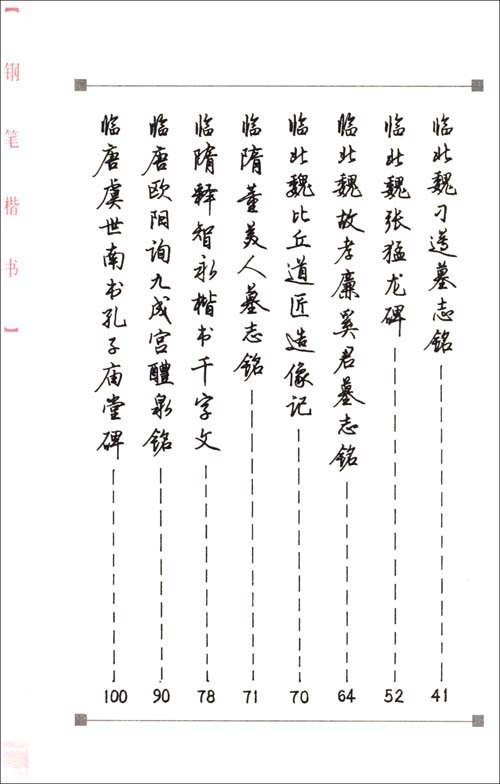 【钢笔楷书】
临北魏刁遵墓志铭 41
临北魏张猛龙碑 52
临北魏故孝廉奚君墓志铭 64
临北魏比丘道匠造像记 70
临隋董美人墓志铭 71
临隋释智永楷书千字文 78
临唐欧阳询九成宫醴泉铭 90
临唐虞世南书孔子庙堂碑 100